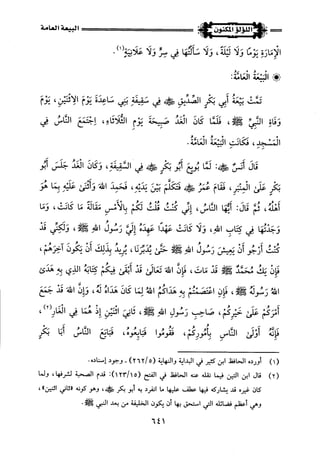 اللؤلؤ المكنون
البيعة العامة
الإمَارَةِ يَوْمًا وَلَا لَيْلَةً، وَلَا سَأَلْتُهَا فِي سِرٍّ وَلَا عَلَانِيَةٍ(١).
البَيْعَةُ العَامَّةُ:
تَمَّتْ بَيْعَةُ أَبِي بَكْرٍ الصِّدِّيقِ ﷺ فِي سَقِيفَةِ بَنِي سَاعِدَةَ يَوْمَ الِاثْنَيْنِ، يَوْمَ
وَفَاةِ النَّبِيِّ ﷺ، فَلَمَّا كَانَ الْغَدُ صَبِيحَةَ يَوْمِ الثُّلَاثَاءِ، اجْتَمَعَ النَّاسُ فِي
الْمَسْجِدِ، فَكَانَتِ الْبَيْعَةُ العَامَّةُ.
قَالَ أَنَسٌ ﷺ: لَمَّا بُويِعَ أَبُو بَكْرٍ فِي السَّقِيفَةِ، وَكَانَ الْغَدُ جَلَسَ أَبُو
بَكْرٍ عَلَى الْمِنْبَرِ، فَقَامَ عُمَرُ ﷺ فَتَكَلَّمَ بَيْنَ يَدَيْهِ، فَحَمِدَ اللهَ وَأَثْنَى عَلَيْهِ بِمَا هُوَ
أَهْلُهُ، ثُمَّ قَالَ: أَيُّهَا النَّاسُ، إِنِّي كُنْتُ قُلْتُ لَكُمْ بِالْأَمْسِ مَقَالَةً مَا كَانَتْ، وَمَا
وَجَدْتُهَا فِي كِتَابِ اللهِ، وَلَا كَانَتْ عَهْدًا عَهِدَهُ إِلَيَّ رَسُولُ اللهِ ﷺ، وَلَكِنِّي قَدْ
كُنْتُ أَرْجُو أَنْ يَعِيشَ رَسُولُ اللهِ ﷺ حَتَّى يَدْبُرَنَا، يُرِيدُ بِذَلِكَ أَنْ يَكُونَ آخِرَهُمْ،
فَإِنْ يَكُ مُحَمَّدٌ ﷺ قَدْ مَاتَ، فَإِنَّ اللهَ تَعَالَى قَدْ أَبْقَى فِيكُمْ كِتَابَهُ الَّذِي بِهِ هَدَى
اللهُ رَسُولَهُ ﷺ، فَإِنِ اعْتَصَمْتُمْ بِهِ هَدَاكُمُ اللهُ لِمَا كَانَ هَدَاهُ لَهُ، وَإِنَّ اللهَ قَدْ جَمَعَ
أَمْرَكُمْ عَلَى خَيْرِكُمْ، صَاحِبِ رَسُولِ اللهِ ﷺ، ثَانِيَ اثْنَيْنِ إِذْ هُمَا فِي الْغَارِ(٢)،
فَإِنَّهُ أَوْلَى النَّاسِ بِأُمُورِكُمْ، فَقُومُوا فَبَايِعُوهُ، فَبَايَعَ النَّاسُ أَبَا بَكْرٍ
(١) أورده الحافظ ابن كثير في البداية والنهاية (٢٦٢/٥) - وجود إسناده.
(٢) قال ابن التين فيما نقله عنه الحافظ في الفتح (١٢٣/١٥): قدم الصحبة لشرفها، ولما
كان غيره قد يشاركه فيها عطف عليها ما انفرد به أبو بكر ﷺ، وهو كونه «ثاني اثنين»،
وهي أعظم فضائله التي استحق بها أن يكون الخليفة من بعد النبي ﷺ.
٦٤١